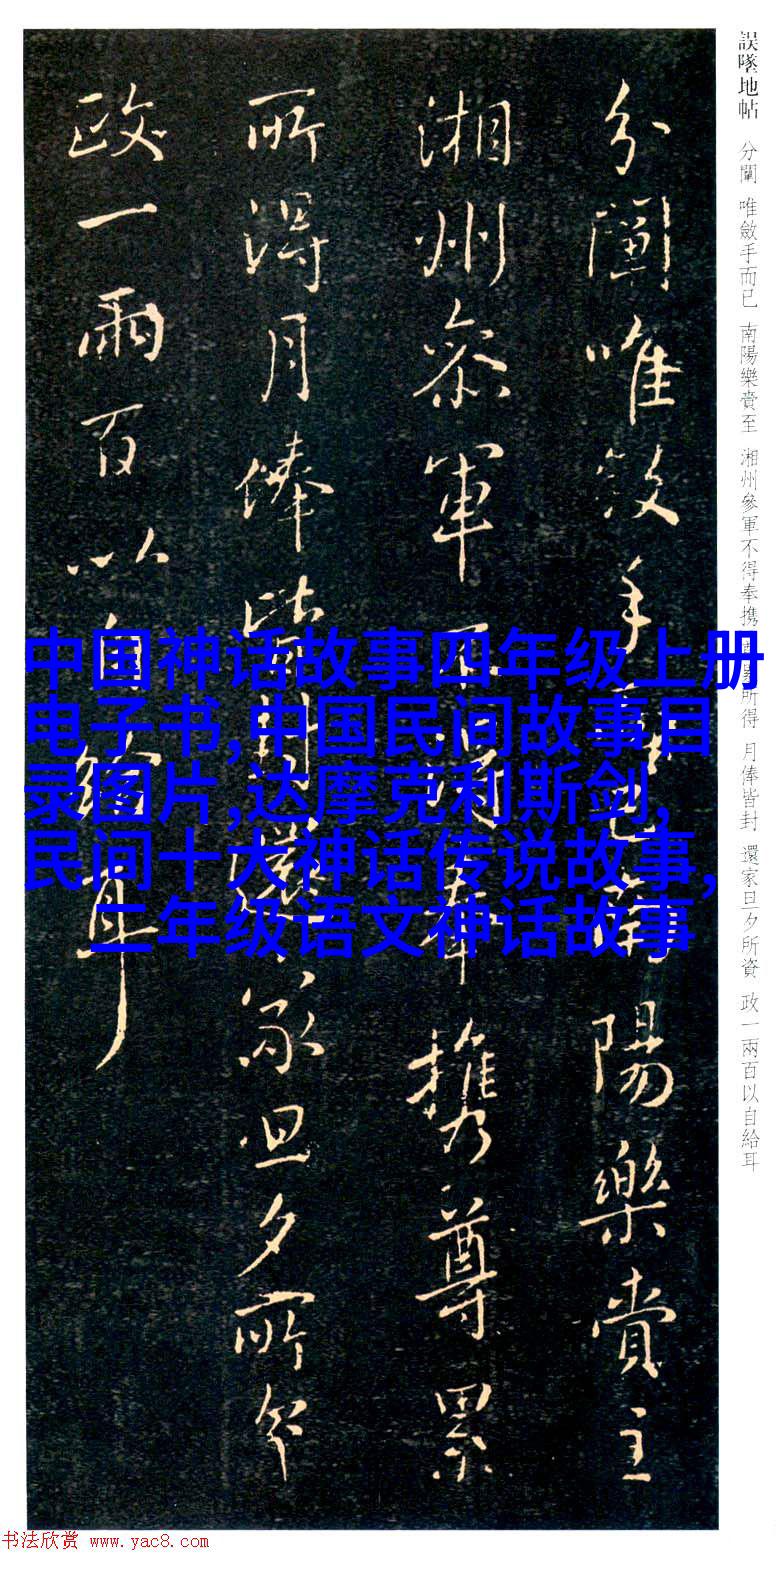 誤墜地帖 分闡 唯斂手而已 南陽樂賫至 湘州參軍不得奉攜 尊累所得 月俸皆封 還家旦夕所資 政一兩百以自給耳
分闡唯斂手而已南陽樂賫至
湘州參軍不得奉攜尊累
所得月俸皆封還家旦夕所資
政一兩百以自給耳
中国神话故事四年级上册
电子书,中国民间故事目
录图片,达摩克利斯剑,
民间十大神话传说故事,
二年级语文神话故事
书法欣赏 www.yac8.com